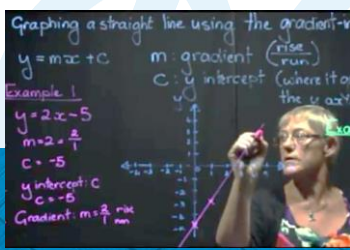 Graphing a straight line using the gradient-in
y = mx + c
m: gradient (rise/run)
c: y intercept (where it
the y ax
Example 1
y = 2x - 5
m = 2 = 2/1
c = -5
y intercept: c
c = -5
Gradient: m = 2/1 rise/run
Exa